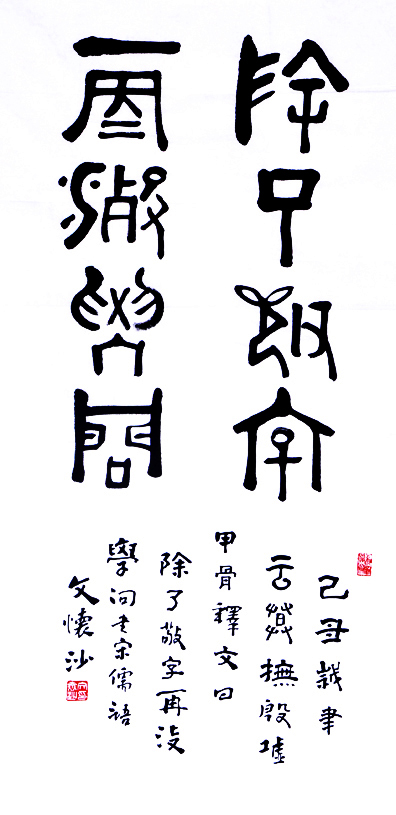 除了敬字
再沒學問
己丑歲聿
云莫撫殷墟
甲骨釋文曰
除了敬字再沒
學问宋儒語
文懷沙